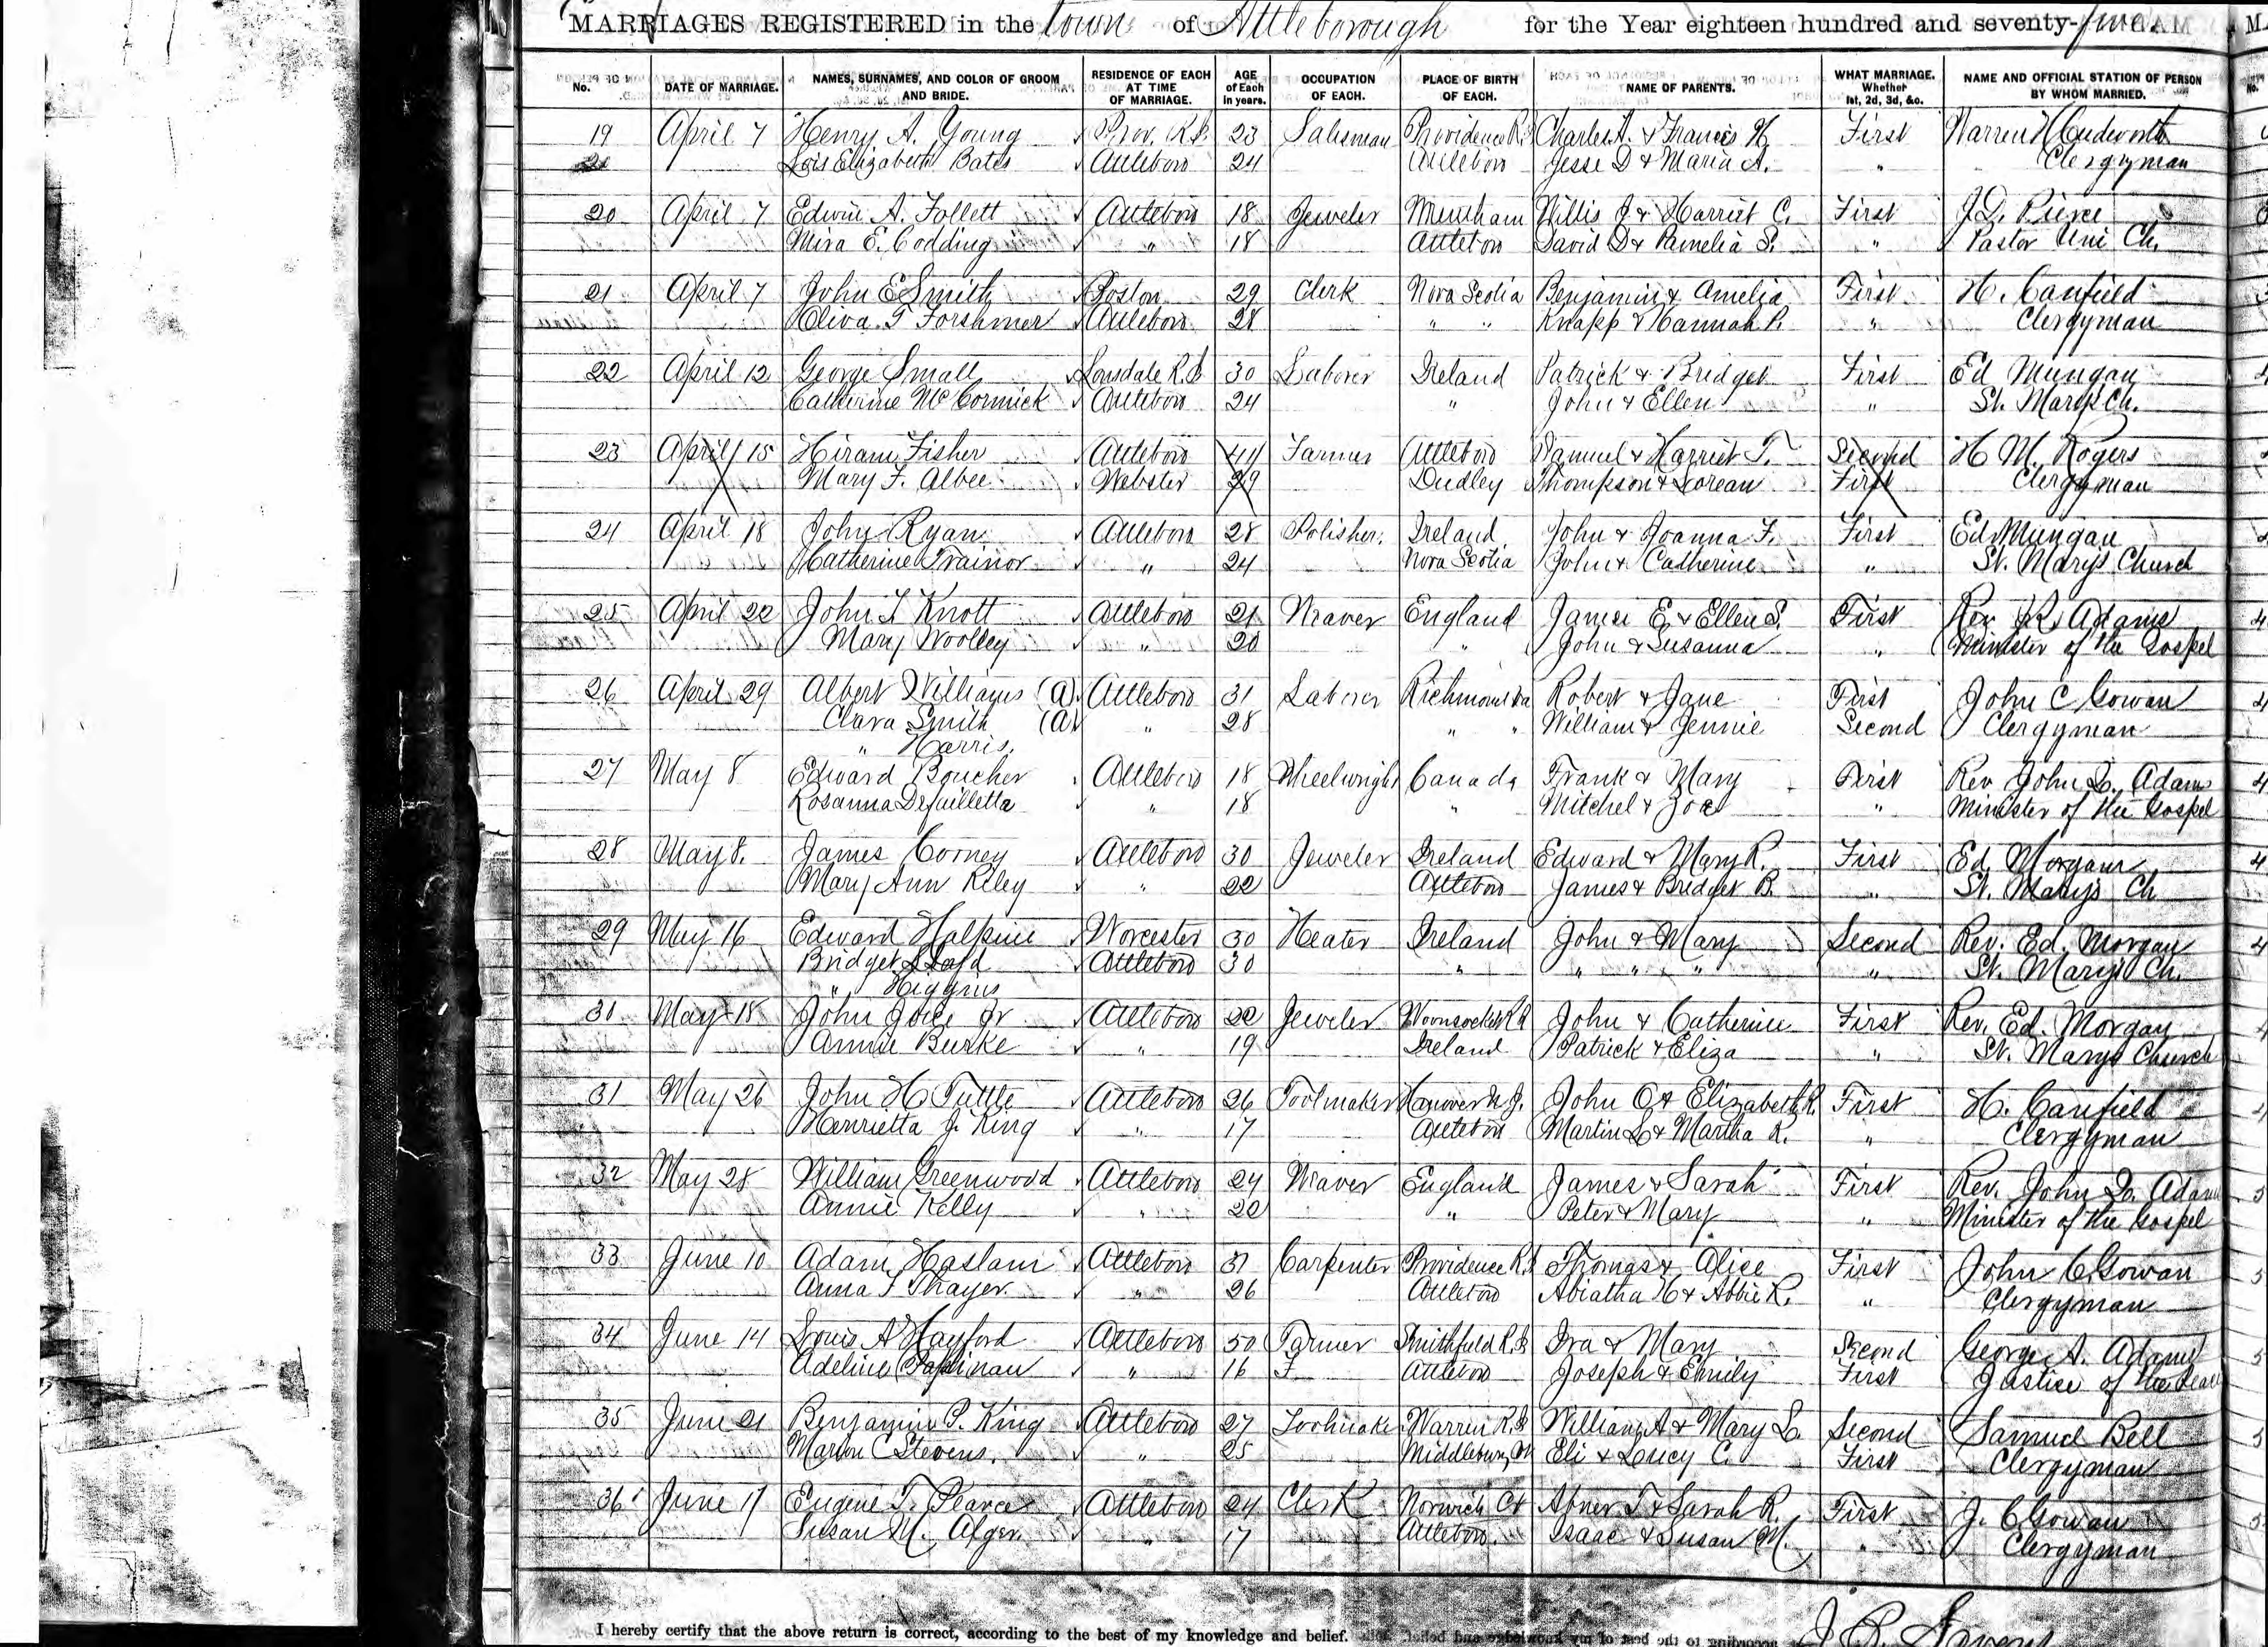 MARRIAGES REGISTERED in the town of Attleborough for the Year eighteen hundred and seventy-
No. DATE OF MARRIAGE. NAMES, SURNAMES, AND COLOR OF GROOM AND BRIDE. RESIDENCE OF EACH AT TIME OF MARRIAGE. AGE of Each in years. OCCUPATION OF EACH. PLACE OF BIRTH OF EACH. NAME OF PARENTS. WHAT MARRIAGE. Whether 1st, 2d, 3d, &c. NAME AND OFFICIAL STATION OF PERSON BY WHOM MARRIED.
19 April 7 Henry A. Young Prov. R.I. 23 Salesman Providence R.I. Charles A. & Francis H. First Warren H Cudworth
Lois Elizabeth Bates Attleboro 24 Attleboro Jesse D & Maria A. " Clergyman
20 April 7 Edwin A. Follett Attleboro 18 Jeweler Willis J & Harriet C. First J.D. Pierce
Mira E. Codding " 18 Attleboro David D & Pamelia S. " Pastor Uni Ch.
21 April 7 John E Smith Boston 29 Clerk Nova Scotia Benjamin & Amelia First H. Canfield
Attleboro 28 " " Knapp & Hannah P. " Clergyman
22 April 12 George Small Lonsdale R.I. 30 Laborer Ireland Patrick & Bridget First Ed Mungan
Catherine McCormick Attleboro 24 " John & Ellen " St. Marys Ch.
23 April 15 Hiram Fisher Attleboro 44 Farmer Attleboro Samuel & Harriet T. Second H M. Rogers
Mary F. Albee Webster 29 Dudley Thompson & Lorean First Clergyman
24 April 18 John Ryan Attleboro 28 Polisher. Ireland John & Joanna F. First Ed Mungan
Catherine Trainor " 24 Nova Scotia John & Catherine " St. Marys Church
25 April 22 John T Knott Attleboro 21 Weaver England James E & Ellen S. First Rev Adams
Mary Woolley " 20 " John & Susanna " Minister of the Gospel
26 April 29 Albert Williams (A) Attleboro 31 Laborer Richmond Va Robert & Jane First John C Gowan
Clara Smith (A) " 28 " " William & Jennie Second Clergyman
" Harris.
27 May 8 Edward Boucher Attleboro 18 Wheelwright Canada Frank & Mary First Rev John Q. Adams
Rosanna " 18 " Mitchel & Zoa " Minister of the Gospel
28 May 8. James Corney Attleboro 30 Jeweler Ireland Edward & Mary R. First Ed. Morgan
Mary Ann Riley " 22 Attleboro James & Bridget B. " St. Mary's Ch
29 May 16 Edward Halpine Worcester 30 Heater Ireland John & Mary Second Rev. Ed. Morgan
Bridget Attleboro 30 " " " " " St. Marys Ch.
" Higgins
30 May 18 John Joice Jr Attleboro 22 Jeweler Woonsocket R I John & Catherine First Rev. Ed. Morgan
Annie Burke " 19 Ireland Patrick & Eliza " St. Marys Church
31 May 26 John H Tuttle Attleboro 26 Toolmaker Hanover N.J. John O & Elizabeth R. First H. Canfield
Henrietta J. King " 17 Attleboro Martin L & Martha R. " Clergyman
32 May 28 William Greenwood Attleboro 24 Weaver England James & Sarah First Rev. John Q. Adams
Annie Kelly " 20 " Peter & Mary " Minister of the Gospel
33 June 10 Adam Haslam Attleboro 31 Carpenter Providence R.I. Thomas & Alice First John C. Gowan
Anna T Thayer. " 26 Attleboro Abiatha H & Abbie R. " Clergyman
34 June 14 Louis A Hayford Attleboro 50 Farmer Smithfield R.I. Ira & Mary Second George A. Adams
Adeline " 16 F Attleboro Joseph & Emily First Justice of the Peace
35 June 21 Benjamin P. King Attleboro 27 Toolmaker Warren R.I. William A & Mary L. Second Samuel Bell
Marion C Stevens. " 25 Eli & Lucy C. First Clergyman
36 June 17 Eugene T. Pearce Attleboro 24 Clerk Norwich Ct Abner T & Sarah R. First J. C Gowan
Susan M. Alger. " 17 Attleboro. Isaac & Susan M. " Clergyman
I hereby certify that the above return is correct, according to the best of my knowledge and belief.